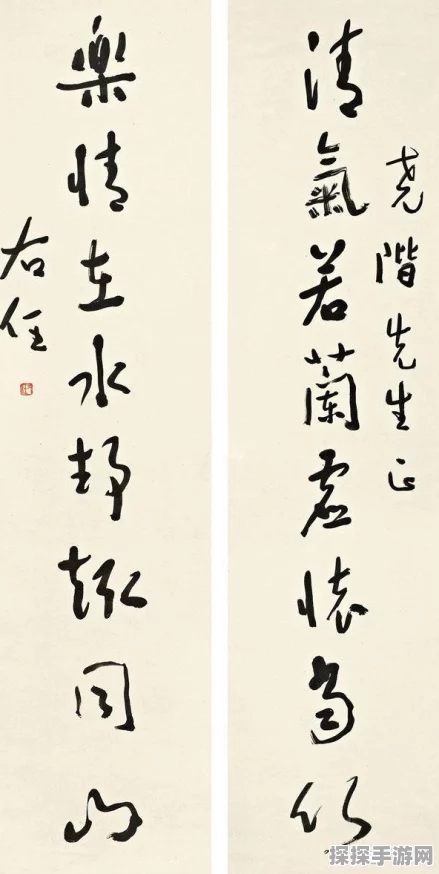 堯階先生正
清氣若蘭虛懷當竹
樂情在水靜趣同山
右任
探探手游网